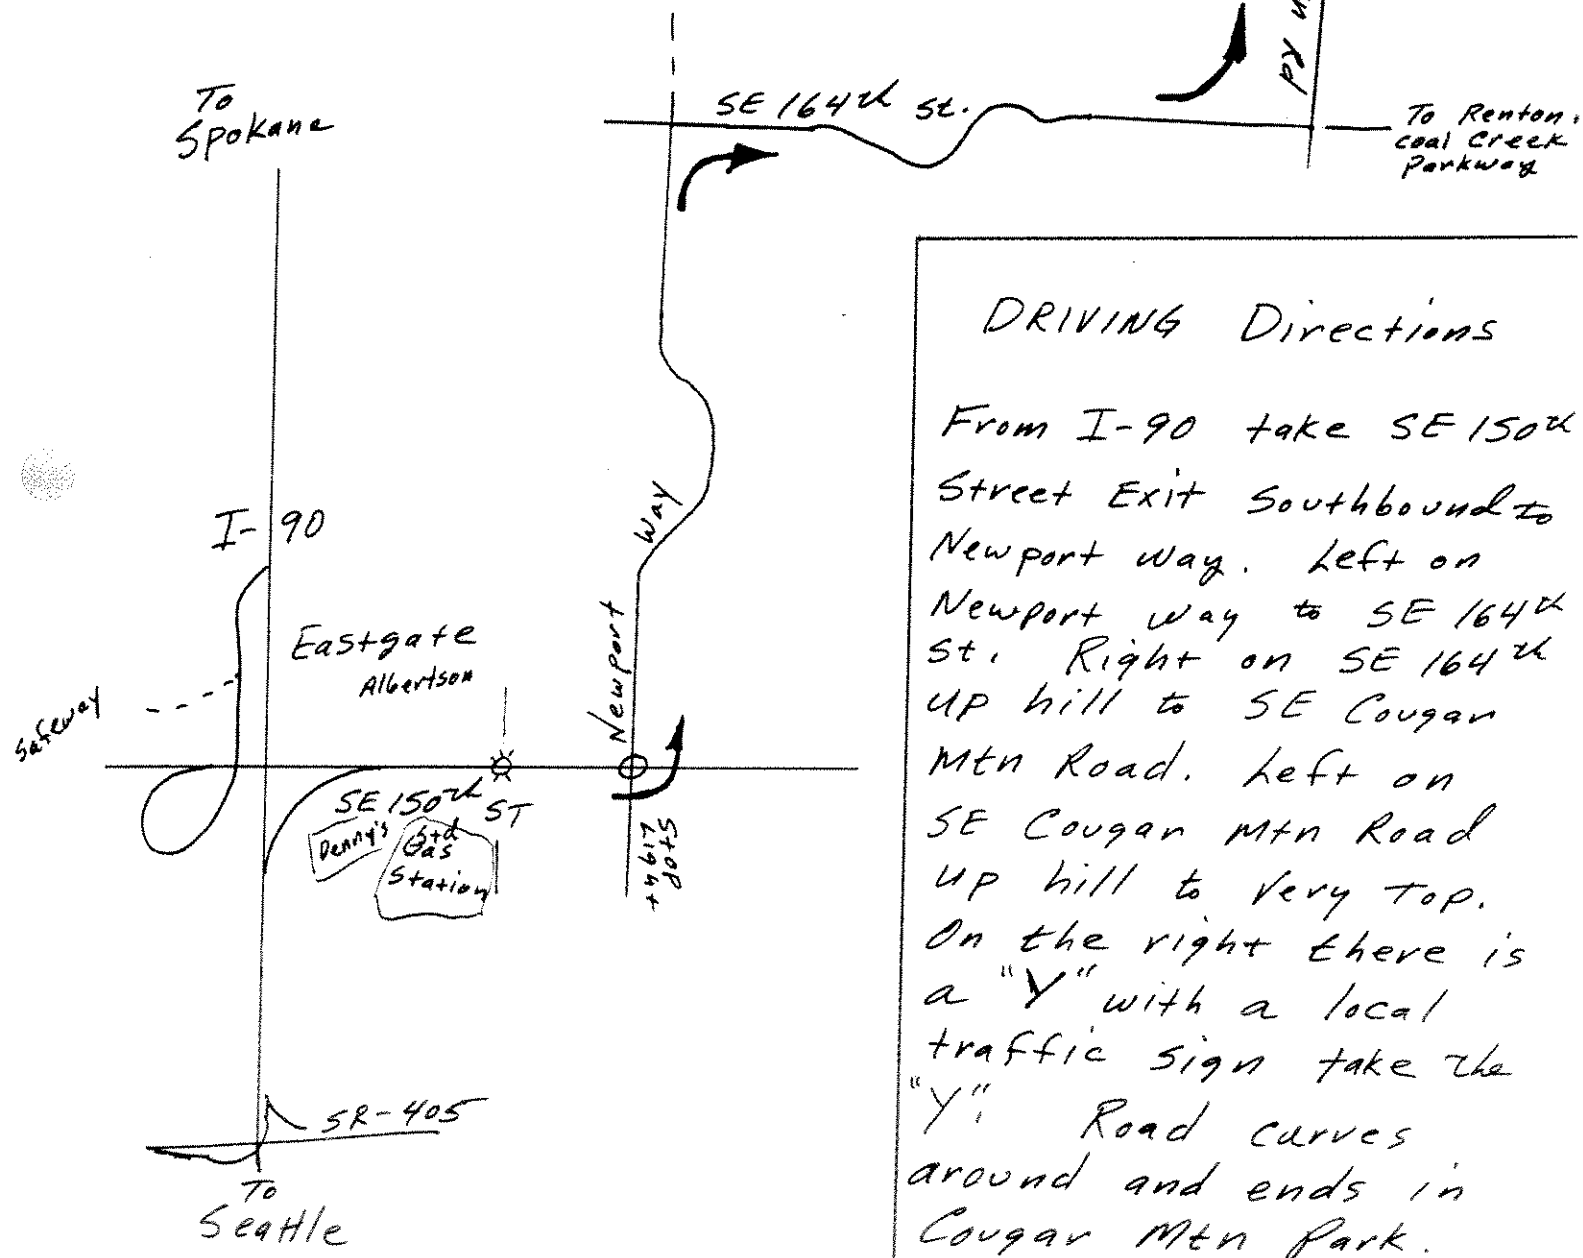 n Rd
To
Spokane
SE 164th St.
To Renton.
Coal Creek
Parkway
I-90
Eastgate
Albertson
Safeway
Newport Way
SE 150th ST
Denny's
Std
Gas
Station
Stop
Light
SR-405
To
Seattle
DRIVING Directions
From I-90 take SE 150th
Street Exit Southbound to
Newport Way. Left on
Newport Way to SE 164th
St. Right on SE 164th
up hill to SE Cougar
Mtn Road. Left on
SE Cougar Mtn Road
up hill to Very Top.
On the right there is
a "Y" with a local
traffic sign take the
"Y". Road curves
around and ends in
Cougar Mtn Park.